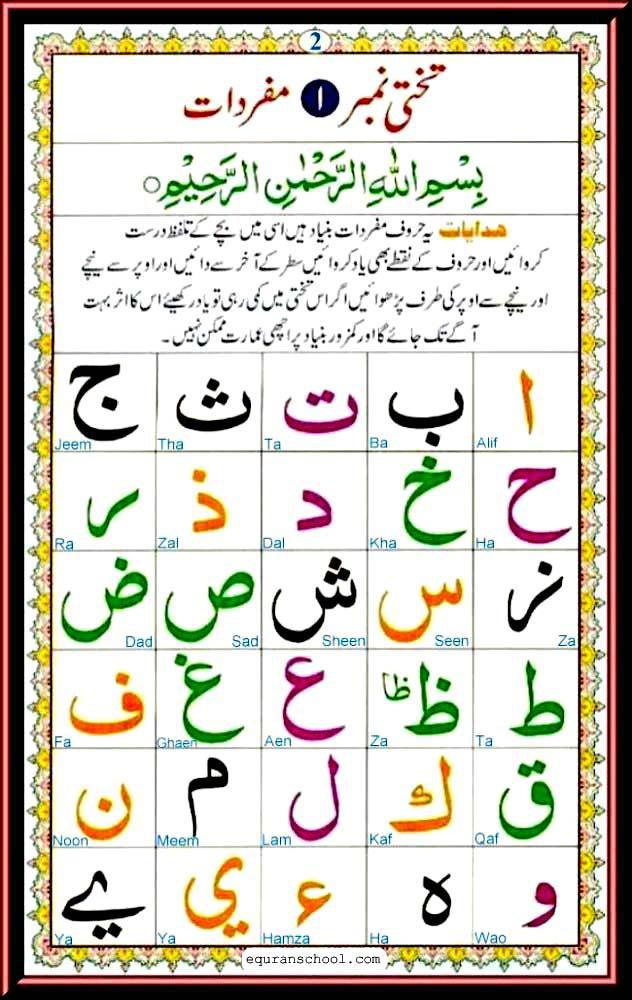 2
تختی نمبر ۱ مفردات
بِسْمِ اللهِ الرَّحْمٰنِ الرَّحِيْمِ○
ھدایات یہ حروف مفردات بنیاد ہیں اسی میں بچے کے تلفظ درست
کروائیں اور حروف کے نقطے بھی یاد کروائیں سطر کے آخر سے دائیں اور اوپر سے نیچے
اور نیچے سے اوپر کی طرف پڑھوائیں اگر اس تختی میں کمی رہی تو یاد رکھیئے اس کا اثر بہت
آگے تک جائے گا اور کمزور بنیاد پر اچھی عمارت ممکن نہیں۔
ا ب ت ث ج
Jeem Tha Ta Ba Alif
ح خ د ذ ر
Ra Zal Dal Kha Ha
ز س ش ص ض
Dad Sad Sheen Seen Za
ط ظ ظا ع غ ف
Fa Ghaen Aen Za Ta
ق ك ل م ن
Noon Meem Lam Kaf Qaf
و ه ء ي ے
Ya Ya Hamza Ha Wao
equranschool.com